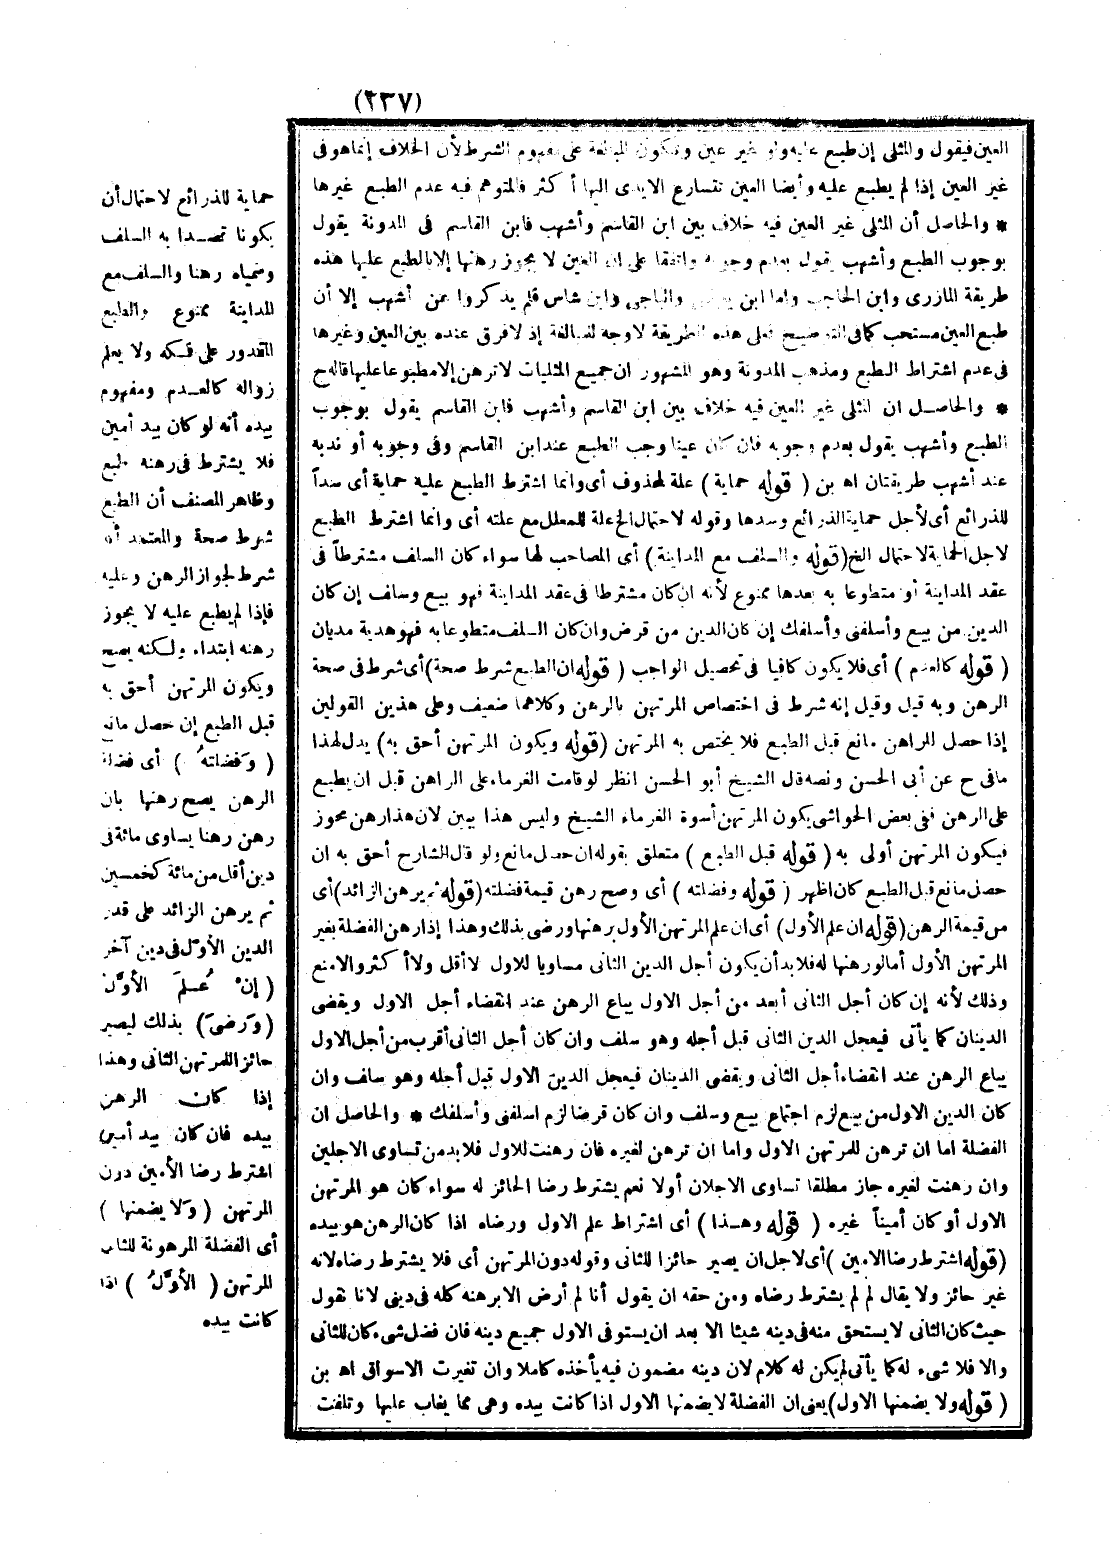 (٢٣٧)
العين فيقول والمثلى إن طبع عليه ولو غير عين وتكون المبالغة على مفهوم الشرط لأن الخلاف إنما هو فى
غير العين إذا لم يطبع عليه وأيضا العين تتسارع الايدى اليها أ كثر فالمتوهم فيه عدم الطبع غيرها
* والحاصل أن المثلى غير العين فيه خلاف بين ابن القاسم وأشهب فابن القاسم فى المدونة يقول
بوجوب الطبع وأشهب يقول بعدم وجوبه واتفقا على ان العين لا يجوز رهنها إلا بالطبع عليها هذه
طريقة المازرى وابن الحاجب واما ابن يونس والباجى وابن شاس فلم يذكروا عن أشهب إلا أن
طبع العين مستحب كما فى التوضيح فعلى هذه الطريقة لاوجه للمبالغة إذ لافرق عنده بين العين وغيرها
فى عدم اشتراط الطبع ومذهب المدونة وهو المشهور ان جميع المثليات لا ترهن إلا مطبوعا عليها قاله ح
* والحاصل ان المثلى غير العين فيه خلاف بين ابن القاسم وأشهب فابن القاسم يقول بوجوب
الطبع وأشهب يقول بعدم وجوبه فان كان عينا وجب الطبع عند ابن القاسم وفى وجوبه أو ندبه
عند أشهب طريقتان اه بن ( قوله حماية ) علة لمحذوف أى وانما اشترط الطبع عليه حماية أى سداً
للذرائع أى لأجل حماية الذرائع وسدها وقوله لاحتمال الخ علة للمعلل مع علته أى وانما اشترط الطبع
لاجل الحماية لاحتمال الخ (قوله والسلف مع المداينة) أى المصاحب لها سواء كان السلف مشترطاً فى
عقد المداينة أو متطوعا به بعدها ممنوع لأنه ان كان مشترطا فى عقد المداينة فهو بيع وسلف إن كان
الدين من بيع وأسلفنى وأسلفك إن كان الدين من قرض وان كان السلف متطوعا به فهو هدية مديان
( قوله كالعدم ) أى فلا يكون كافيا فى تحصيل الواجب ( قوله ان الطبع شرط صحة) أى شرط فى صحة
الرهن وبه قيل وقيل إنه شرط فى اختصاص المرتهن بالرهن وكلاهما ضعيف وعلى هذين القولين
إذا حصل للراهن مانع قبل الطبع فلا يختص به المرتهن (قوله ويكون المرتهن أحق به) يدل لهذا
مافى ح عن أبى الحسن ونصه قال الشيخ أبو الحسن انظر لو قامت الغرماء على الراهن قبل ان يطبع
على الرهن ففى بعض الحواشى يكون المرتهن أسوة الغرماء الشيخ وليس هذا ببين لان هذا رهن محوز
فيكون المرتهن أولى به ( قوله قبل الطبع ) متعلق بقوله ان حصل مانع ولو قال الشارح أحق به ان
حصل مانع قبل الطبع كان اظهر ( قوله وفضلته ) أى وصح رهن قيمة فضلته (قوله ثم يرهن الزائد) أى
من قيمة الرهن (قوله ان علم الأول) أى ان علم المرتهن الأول برهنها ورضى بذلك وهذا إذا رهن الفضلة بغير
المرتهن الأول أمالو رهنها له فلا بد أن يكون أجل الدين الثانى مساويا للاول لا أقل ولا أ كثر والا منع
وذلك لأنه إن كان أجل الثانى أبعد من أجل الاول يباع الرهن عند انقضاء أجل الاول ويقضى
الدينان كما يأتى فيعجل الدين الثانى قبل أجله وهو سلف وان كان أجل الثانى أقرب من أجل الاول
يباع الرهن عند انقضاء أجل الثانى ويقضى الدينان فيعجل الدين الاول قبل أجله وهو سلف وان
كان الدين الاول من بيع لزم اجتماع بيع وسلف وان كان قرضا لزم اسلفنى وأسلفك * والحاصل ان
الفضلة اما ان ترهن للمرتهن الاول واما ان ترهن لغيره فان رهنت للاول فلا بد من تساوى الاجلين
وان رهنت لغيره جاز مطلقا تساوى الاجلان أولا نعم يشترط رضا الحائز له سواء كان هو المرتهن
الاول أو كان أميناً غيره ( قوله وهذا ) أى اشتراط علم الاول ورضاه اذا كان الرهن هو بيده
(قوله اشترط رضا الامين ) أى لاجل ان يصير حائزا للثانى وقوله دون المرتهن أى فلا يشترط رضاه لانه
غير حائز ولا يقال لم لم يشترط رضاه ومن حقه ان يقول أنا لم أرض الا برهنه كله فى دينى لانا نقول
حيث كان الثانى لا يستحق منه فى دينه شيئا الا بعد ان يستوفى الاول جميع دينه فان فضل شىء كان للثانى
والا فلا شىء له كما يأتى لم يكن له كلام لان دينه مضمون فيه يأخذه كاملا وان تغيرت الاسواق اه بن
( قوله ولا يضمنها الاول) يعنى ان الفضلة لا يضمنها الاول اذا كانت بيده وهى مما يغاب عليها وتلفت
حماية للذرائع لاحتمال أن
يكونا قصدا به السلف
وسمياه رهنا والسلف مع
المداينة ممنوع والطبع
المقدور على فكه ولا يعلم
زواله كالعدم ومفهوم
بيده أنه لو كان بيد أمين
فلا يشترط فى رهنه طبع
وظاهر المصنف أن الطبع
شرط صحة والمعتمد أنه
شرط لجواز الرهن وعليه
فإذا لم يطبع عليه لا يجوز
رهنه ابتداء ولكنه يصح
ويكون المرتهن أحق به
قبل الطبع إن حصل مانع
( وَفضلتهُ ) أى فضلة
الرهن يصح رهنها بان
رهن رهنا يساوى مائة فى
دين أقل من مائة كخمسين
ثم يرهن الزائد على قدر
الدين الأوّل فى دين آخر
( إنْ عُلمَ الأوَّلُ
(وَرضىَ) بذلك ليصير
حائزا للمرتهن الثانى وهذا
إذا كان الرهن
بيده فان كان بيد أمين
اشترط رضا الأمين دون
المرتهن ( وَلا يضمنها )
أى الفضلة المرهونة للثانى
المرتهن ( الأوَّلُ ) اذا
كانت بيده